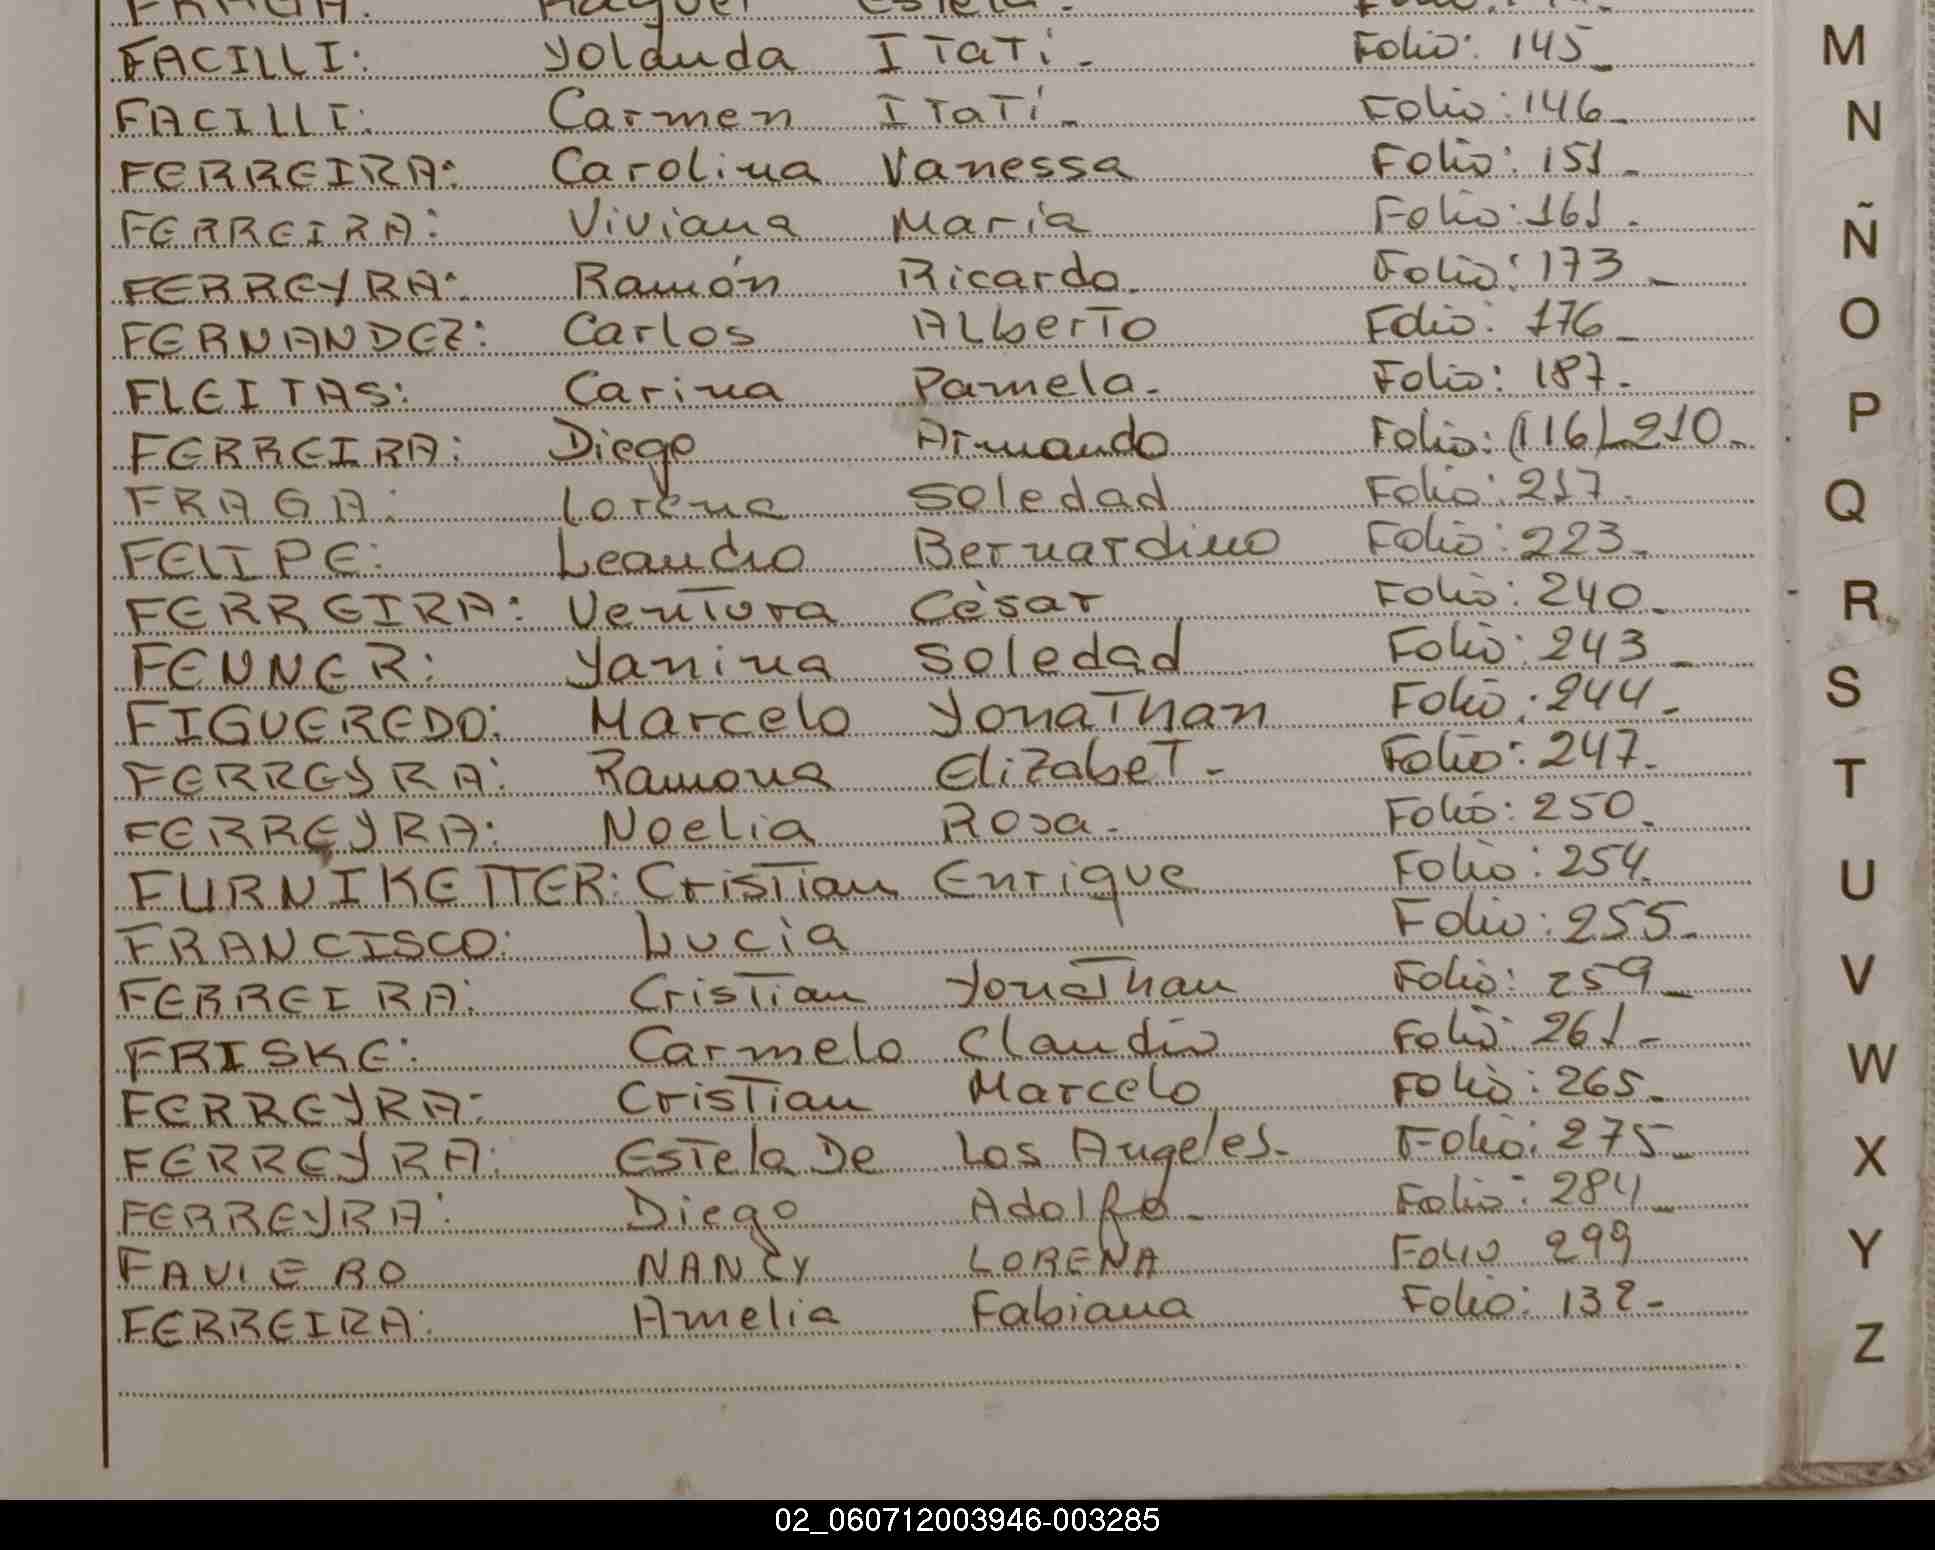 FRAGA: Raquel Estela.
FACILLI: Yolanda ITaTí. Folio: 145
FACILLI: Carmen ITaTí. Folio: 146
FERREIRA: Carolina Vanessa Folio: 151
FERREIRA: Viviana María Folio: 161
FERREYRA: Ramón Ricardo. Folio: 173
FERNANDEZ: Carlos ALberTo Folio: 176
FLEITAS: Carina Pamela. Folio: 187.
FERREIRA: Diego Armando Folio: (116) 210
FRAGA: Lorena Soledad Folio: 217
FELIPE: Leandro Bernardino Folio: 223
FERREIRA: VenTura César Folio: 240
FENNER: Yanina Soledad Folio: 243
FIGUEREDO: Marcelo YonaThan Folio: 244
FERREYRA: Ramona ElizabeT. Folio: 247.
FERREYRA: Noelia Rosa. Folio: 250.
FURNIKETTER: CrisTian Enrique Folio: 254
FRANCISCO: Lucía Folio: 255
FERREIRA: CrisTian YonaThan Folio: 259
FRISKE: Carmelo Claudio Folio: 261
FERREYRA: CrisTian Marcelo Folio: 265
FERREYRA: EsTela De Los Angeles. Folio: 275
FERREYRA: Diego Adolfo Folio: 284
FAVIERO NANCY LORENA FOLIO 299
FERREIRA: Amelia Fabiana Folio: 132
M
N
Ñ
O
P
Q
R
S
T
U
V
W
X
Y
Z
02_060712003946-003285